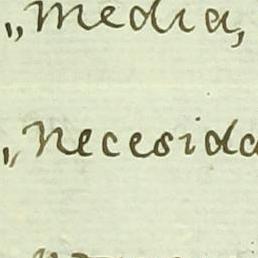 „media,
„necesida